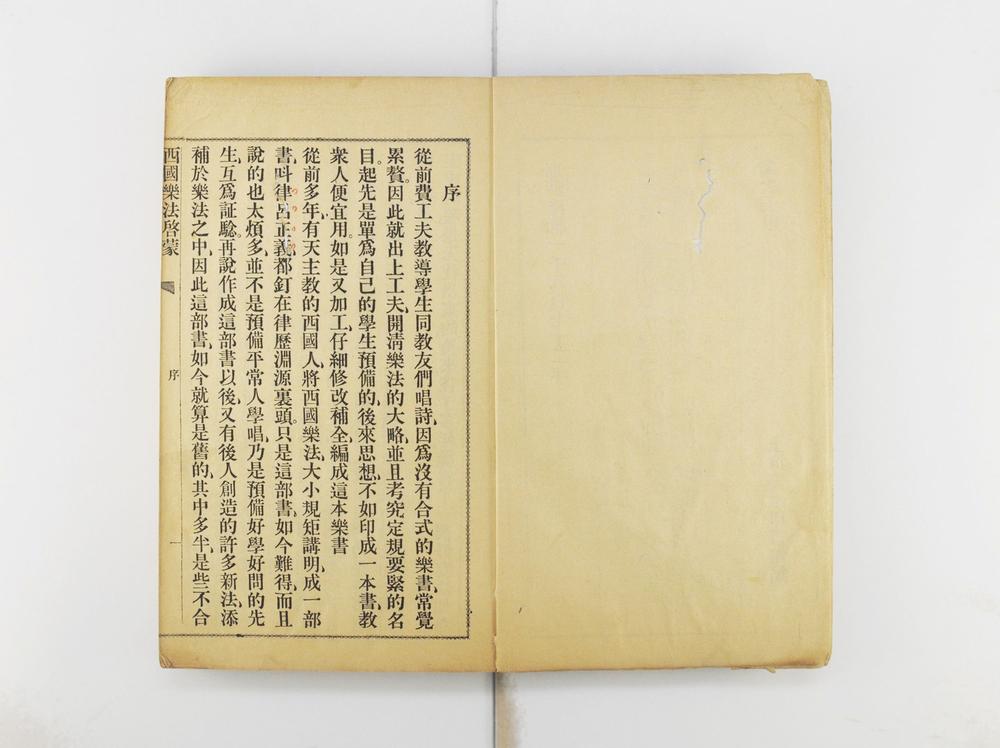 序
從前費工夫教導學生同教友們唱詩、因爲沒有合式的樂書、常覺
累贅。因此就出上工夫、開清樂法的大略、並且考究定規要緊的名
目。起先是單爲自己的學生預備的、後來思想、不如印成一本書、教
衆人便宜用。如是又加工、仔細修改補全、編成這本樂書
從前多年、有天主教的西國人、將西國樂法、大小規矩講明、成一部
書、呌律呂正義、都釘在律歷淵源裏頭。只是這部書、如今難得、而且
說的也太煩多、並不是預備平常人學唱、乃是預備好學好問的先
生、互爲証騐。再說作成這部書以後、又有後人創造的許多新法、添
補於樂法之中、因此這部書、如今就算是舊的、其中多半是些不合
西國樂法啓蒙
序
一